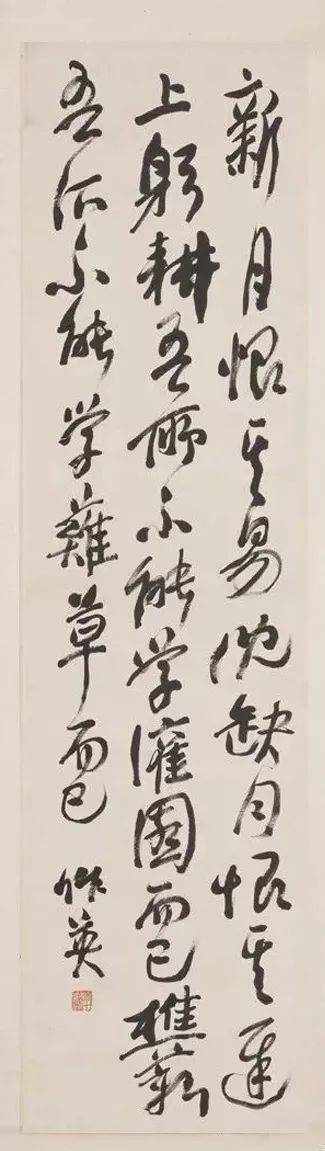 新月恨其易沈缺月恨其遲
上躬耕吾所不能学灌園而已樵薪
吾所不能学薙草而已 作英